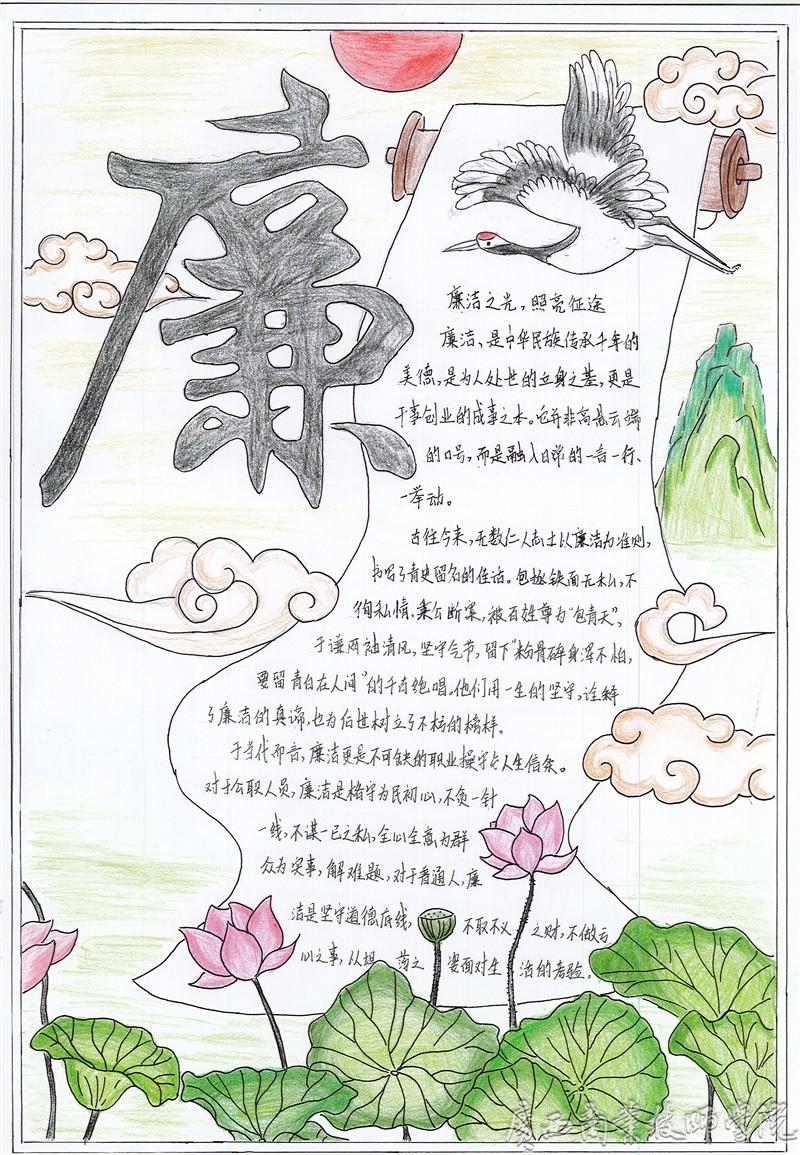 廉
廉洁之光，照亮征途
廉洁、是中华民族传承千年的
美德，是为人处世的立身之基，更是
干事创业的成事之本。它并非高悬云端
的口号，而是融入日常的一言一行、
一举动。
古往今来，无数仁人志士以廉洁为准则，
书写了青史留名的佳话。包拯铁面无私，不
徇私情、秉公断案，被百姓尊为“包青天”，
于谦两袖清风，坚守气节，留下“粉骨碎身浑不怕，
要留青白在人间”的千古绝唱。他们用一生的坚守，诠释
了廉洁的真谛，也为后世树立了不朽的榜样。
于当代而言，廉洁更是不可缺的职业操守与人生信条。
对于公职人员，廉洁是恪守为民初心，不负一针
一线，不谋一己之私，全心全意为群
众为实事，解难题，对于普通人，廉
洁是坚守道德底线，不取不义之财，不做亏
心之事，以坦荡之姿面对生活的考验。
广西商业技师学院